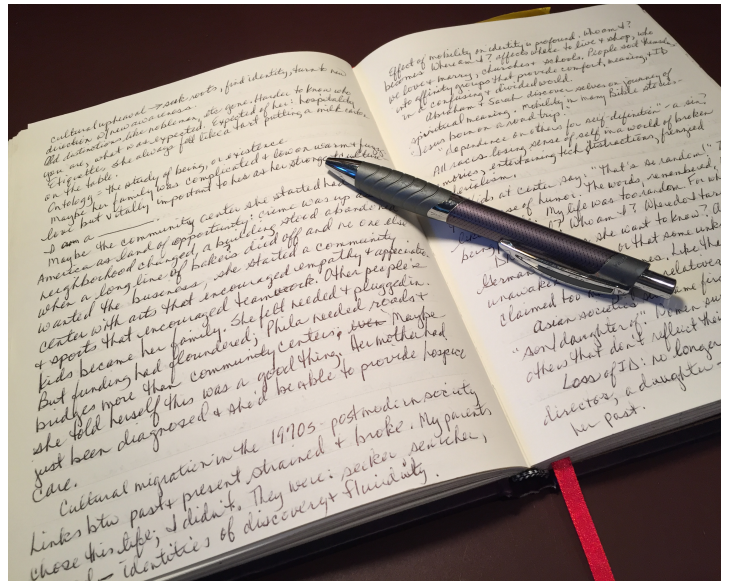 Cultural upheaval → seek roots, find identity, turn to new
direction of new awareness.
Old distinctions, like nobleman, etc gone. Harder to know who
you are, what was expected. Expected of her: hospitality,
Etiquette. She always felt like a tart putting a milk carton
on the table.
Ontology - the study of being, or existence.
Maybe her family was complicated & low on warm &
love but vitally important to her as her strongest
I am a
Maybe the community center she started had
America as land of opportunity: crime was up a
neighborhood changed, a building stood abandoned
when a long line of bakers died off and no one else
wanted the business, she started a community
center with arts that encouraged empathy & appreciatn.
& sports that encouraged teamwork. Other people's
kids became her family. She felt needed & plugged in.
But funding had floundered; Phila needed roads &
bridges more than community centers; Maybe
she told herself this was a good thing. Her mother had
just been diagnosed & she'd be able to provide hospice
care.
Cultural migration in the 1970s - postmodern society
Links btw past & present strained & broke. My parents
chose this life; I didn't. They were: seeker, searcher,
identities of discovery & fluidity.
Effect of mobility on identity is profound. Who am I?
becomes Where am I? affects where to live & shop, who
we love & marry, churches & schools. People sort themselves
into affinity groups that provide comfort, meaning, & ID
in a confusing & divided world.
Abraham & Sarah discover selves on journey of
spiritual meaning. Mobility in many Bible stories -
Jesus born on a road trip.
"dependence on others for self definition" - a sin?
All races losing sense of self in a world of broken
memories, entertaining tech distractions, frenzied
materialism.
Kids at center say: "That's so random."
sense of humor. The words, remembered,
My life was too random. For wh
? Who am I? Where do I turn
being she want to know? A
German or that some unk
unawak es. Like the
claimed too m relatives
Asian societies some fera
"son/daughter of." Women su
others that don't reflect their
Loss of ID: no longer
director, a daughter -
her past.